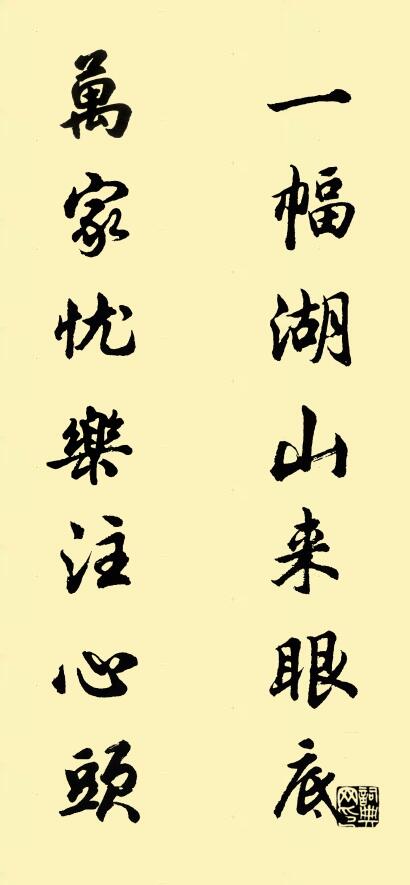 一幅湖山来眼底
萬家忧樂注心頭
詞典网印